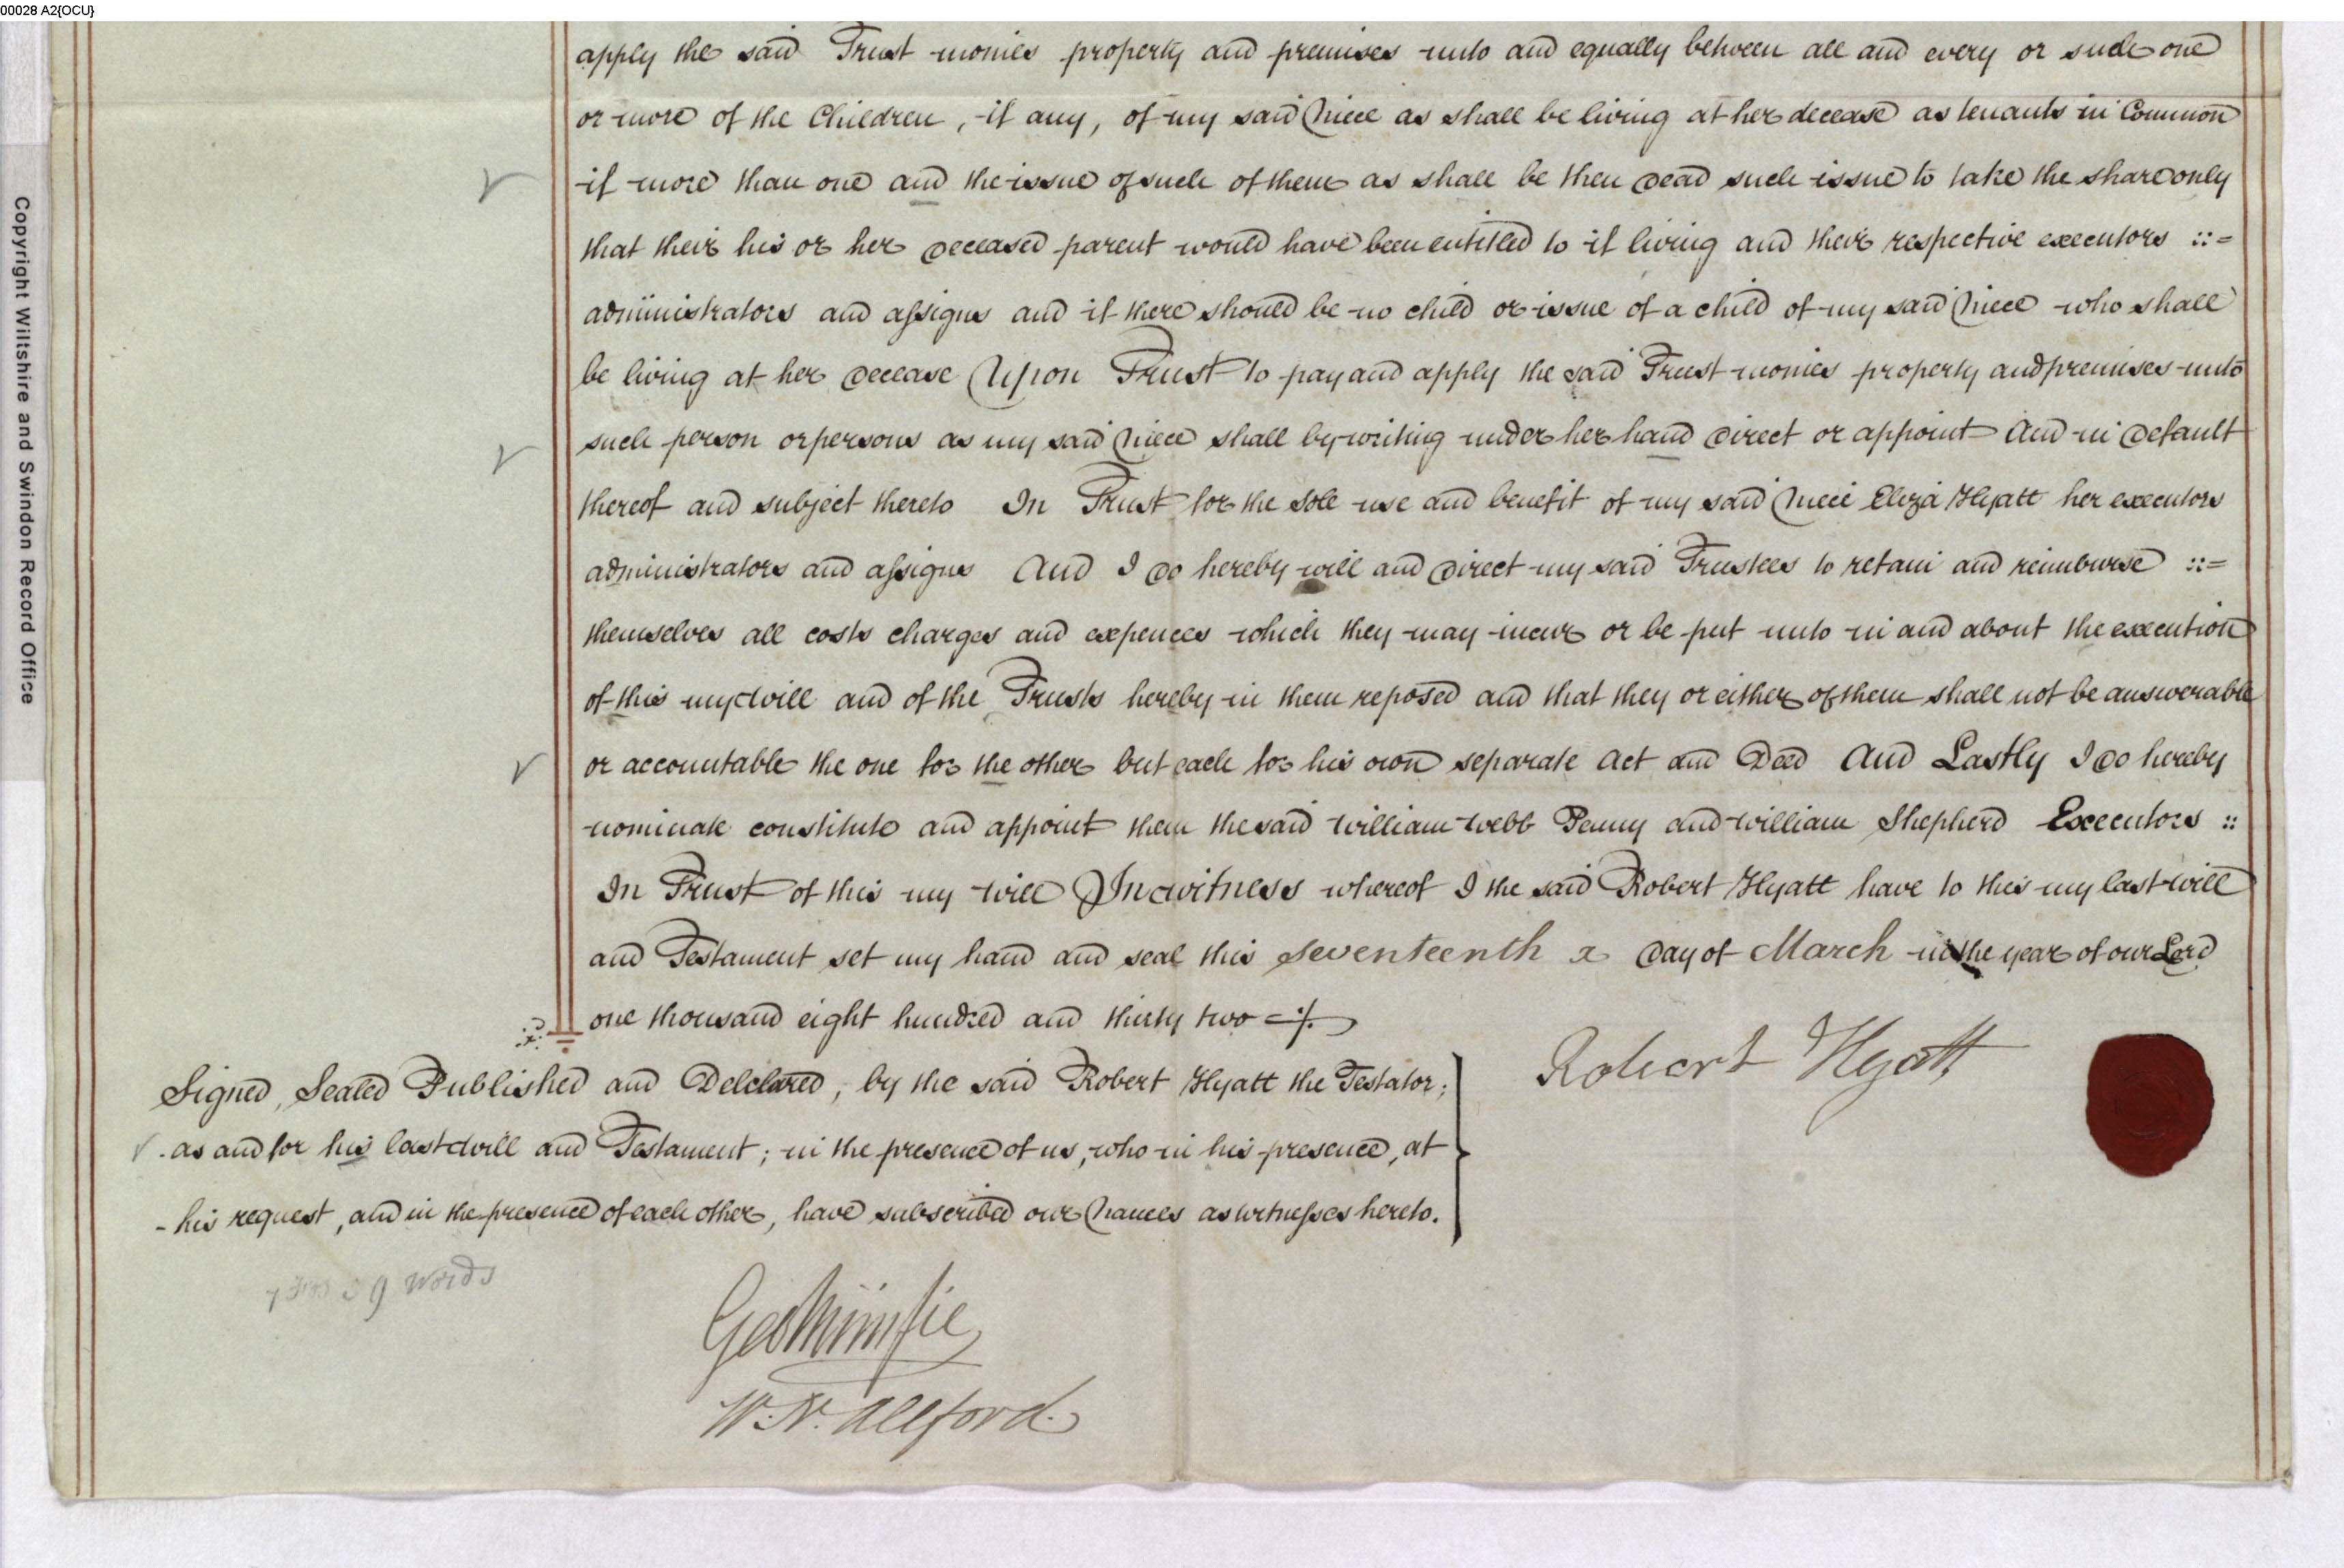 00028 A2{OCU}
Copyright Wiltshire and Swindon Record Office
apply the said Trust monies property and premises unto and equally between all and every or such one
or more of the Children, if any, of my said Niece as shall be living at her decease as tenants in Common
if more than one and the issue of such of them as shall be then dead such issue to take the share only
that their his or her deceased parent would have been entitled to if living and their respective executors ::=
administrators and assigns and if there should be no child or issue of a child of my said Niece who shall
be living at her decease Upon Trust to pay and apply the said Trust monies property and premises unto
such person or persons as my said Niece shall by writing under her hand direct or appoint And in default
thereof and subject thereto In Trust for the sole use and benefit of my said Niece Eliza Hyatt her executors
administrators and assigns And I do hereby will and direct my said Trustees to retain and reimburse ::=
themselves all costs charges and expences which they may incur or be put unto in and about the execution
of this my will and of the Trusts hereby in them reposed and that they or either of them shall not be answerable
or accountable the one for the other but each for his own separate Act and Deed And Lastly I do hereby
nominate constitute and appoint them the said William Webb Penny and William Shepherd Executors ::
In Trust of this my Will In witness whereof I the said Robert Hyatt have to this my last will
and Testament set my hand and seal this Seventeenth Day of March in the year of our Lord
one thousand eight hundred and thirty two
Robert Hyatt
Signed, Sealed Published and Delclared, by the said Robert Hyatt the Testator;
as and for his last will and Testament; in the presence of us, who in his presence, at
his request, and in the presence of each other, have subscribed our Names as witnesses hereto.
9 words
Geo
W. N. Allford.